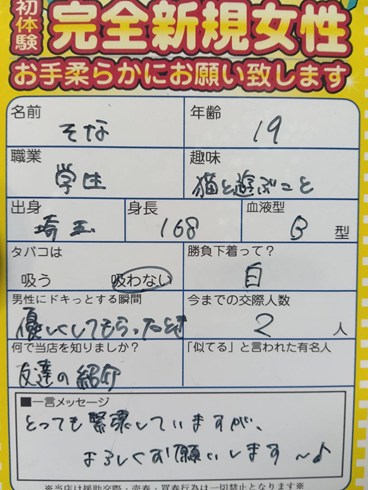 初体験
完全新規女性
お手柔らかにお願い致します
名前 そな
年齢 19
職業 学生
趣味 猫と遊ぶこと
出身 埼玉
身長 168
血液型 B 型
タバコは
吸う 吸わない
勝負下着って?
白
男性にドキっとする瞬間
優しくしてもらったとき
今までの交際人数
2 人
何で当店を知りましたか?
友達の紹介
「似てる」と言われた有名人
■一言メッセージ
とっても緊張していますが、
よろしくお願いします〜♪
※当店は援助交際・売春・買春行為は一切禁止となります※